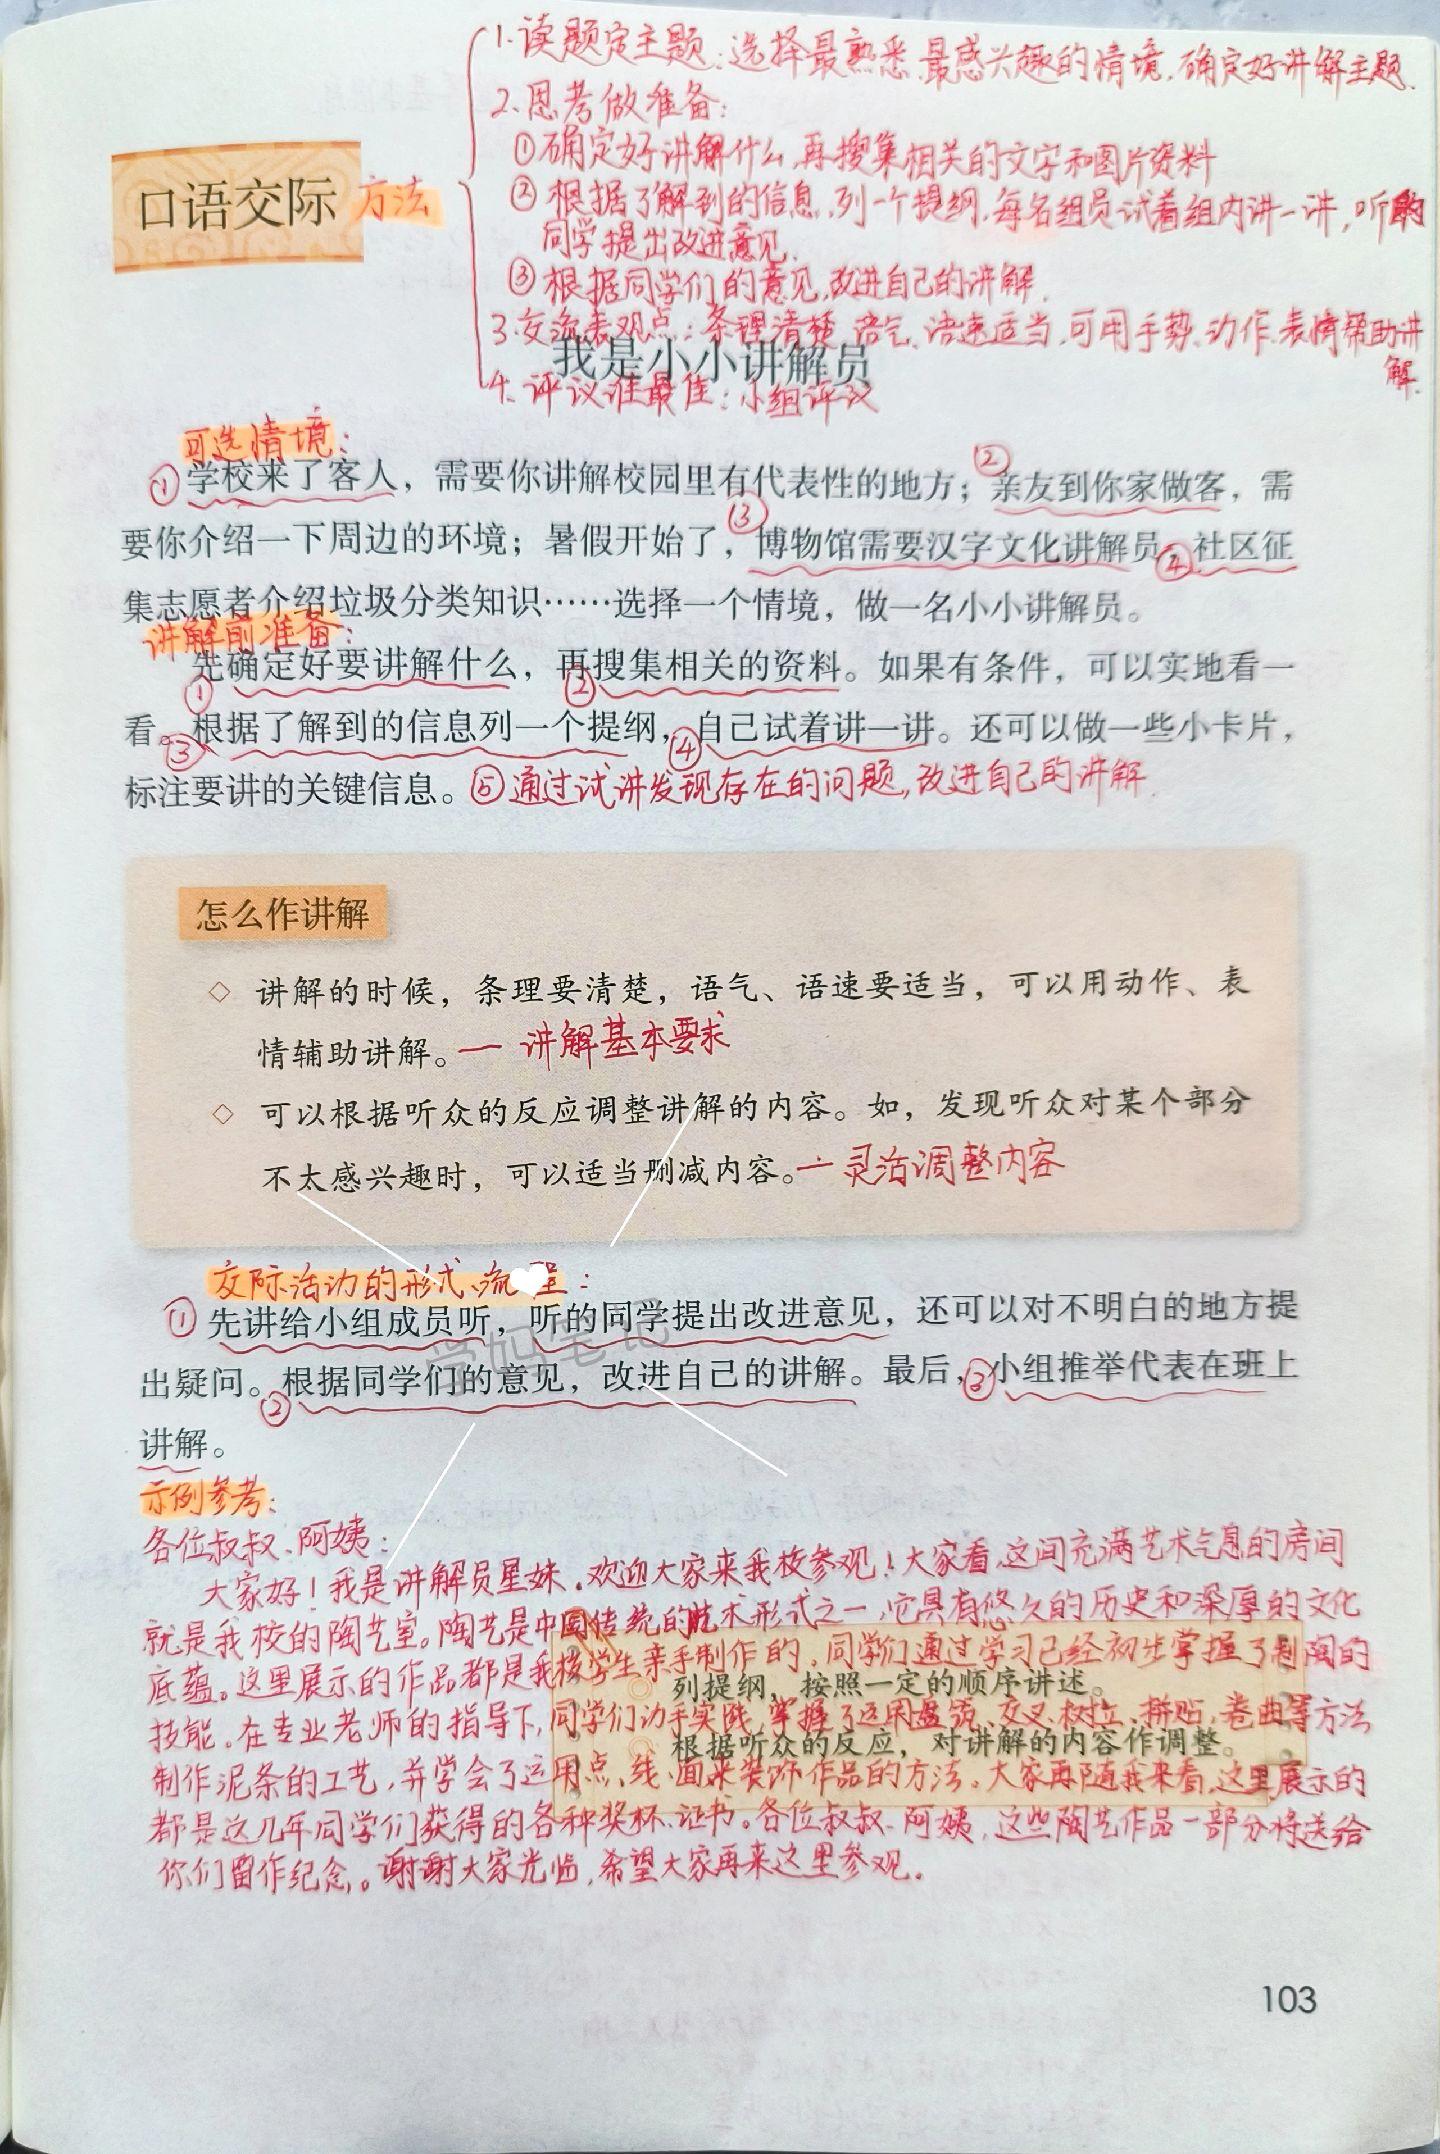 1.读题定主题:选择最熟悉、最感兴趣的情境,确定好讲解主题.
2.思考做准备:
①确定好讲解什么,再搜集相关的文字和图片资料
口语交际 方法
②根据了解到的信息,列一个提纲,每名组员试着组内讲一讲,听的
同学提出改进意见.
③根据同学们的意见,改进自己的讲解.
3.交流表观点:条理清楚,语气、语速适当,可用手势、动作、表情帮助讲
解.
我是小小讲解员
4.评议谁最佳:小组评议
可选情境:
①学校来了客人,需要你讲解校园里有代表性的地方;②亲友到你家做客,需
要你介绍一下周边的环境;暑假开始了,③博物馆需要汉字文化讲解员;④社区征
集志愿者介绍垃圾分类知识……选择一个情境,做一名小小讲解员。
讲解前准备:
①先确定好要讲解什么,②再搜集相关的资料。如果有条件,可以实地看一
看。③根据了解到的信息列一个提纲,④自己试着讲一讲。还可以做一些小卡片,
标注要讲的关键信息。⑤通过试讲发现存在的问题,改进自己的讲解.
怎么作讲解
◇ 讲解的时候,条理要清楚,语气、语速要适当,可以用动作、表
情辅助讲解。— 讲解基本要求
◇ 可以根据听众的反应调整讲解的内容。如,发现听众对某个部分
不太感兴趣时,可以适当删减内容。—灵活调整内容
交际活动的形式、流程:
①先讲给小组成员听,听的同学提出改进意见,还可以对不明白的地方提
学如笔记
出疑问。②根据同学们的意见,改进自己的讲解。最后,③小组推举代表在班上
讲解。
示例参考:
各位叔叔、阿姨:
大家好!我是讲解员星妹。欢迎大家来我校参观!大家看,这间充满艺术气息的房间
就是我校的陶艺室。陶艺是中国传统的艺术形式之一,它具有悠久的历史和深厚的文化
底蕴。这里展示的作品都是我校学生亲手制作的,同学们通过学习已经初步掌握了制陶的
列提纲,按照一定的顺序讲述。
技能。在专业老师的指导下,同学们动手实践,掌握了运用盘筑、交叉、树立、拼贴、卷曲等方法
根据听众的反应,对讲解的内容作调整。
制作泥条的工艺,并学会了运用点、线、面来装饰作品的方法。大家再随我来看,这里展示的
都是这几年同学们获得的各种奖杯、证书。各位叔叔、阿姨,这些陶艺作品一部分将送给
你们留作纪念。谢谢大家光临,希望大家再来这里参观。
103